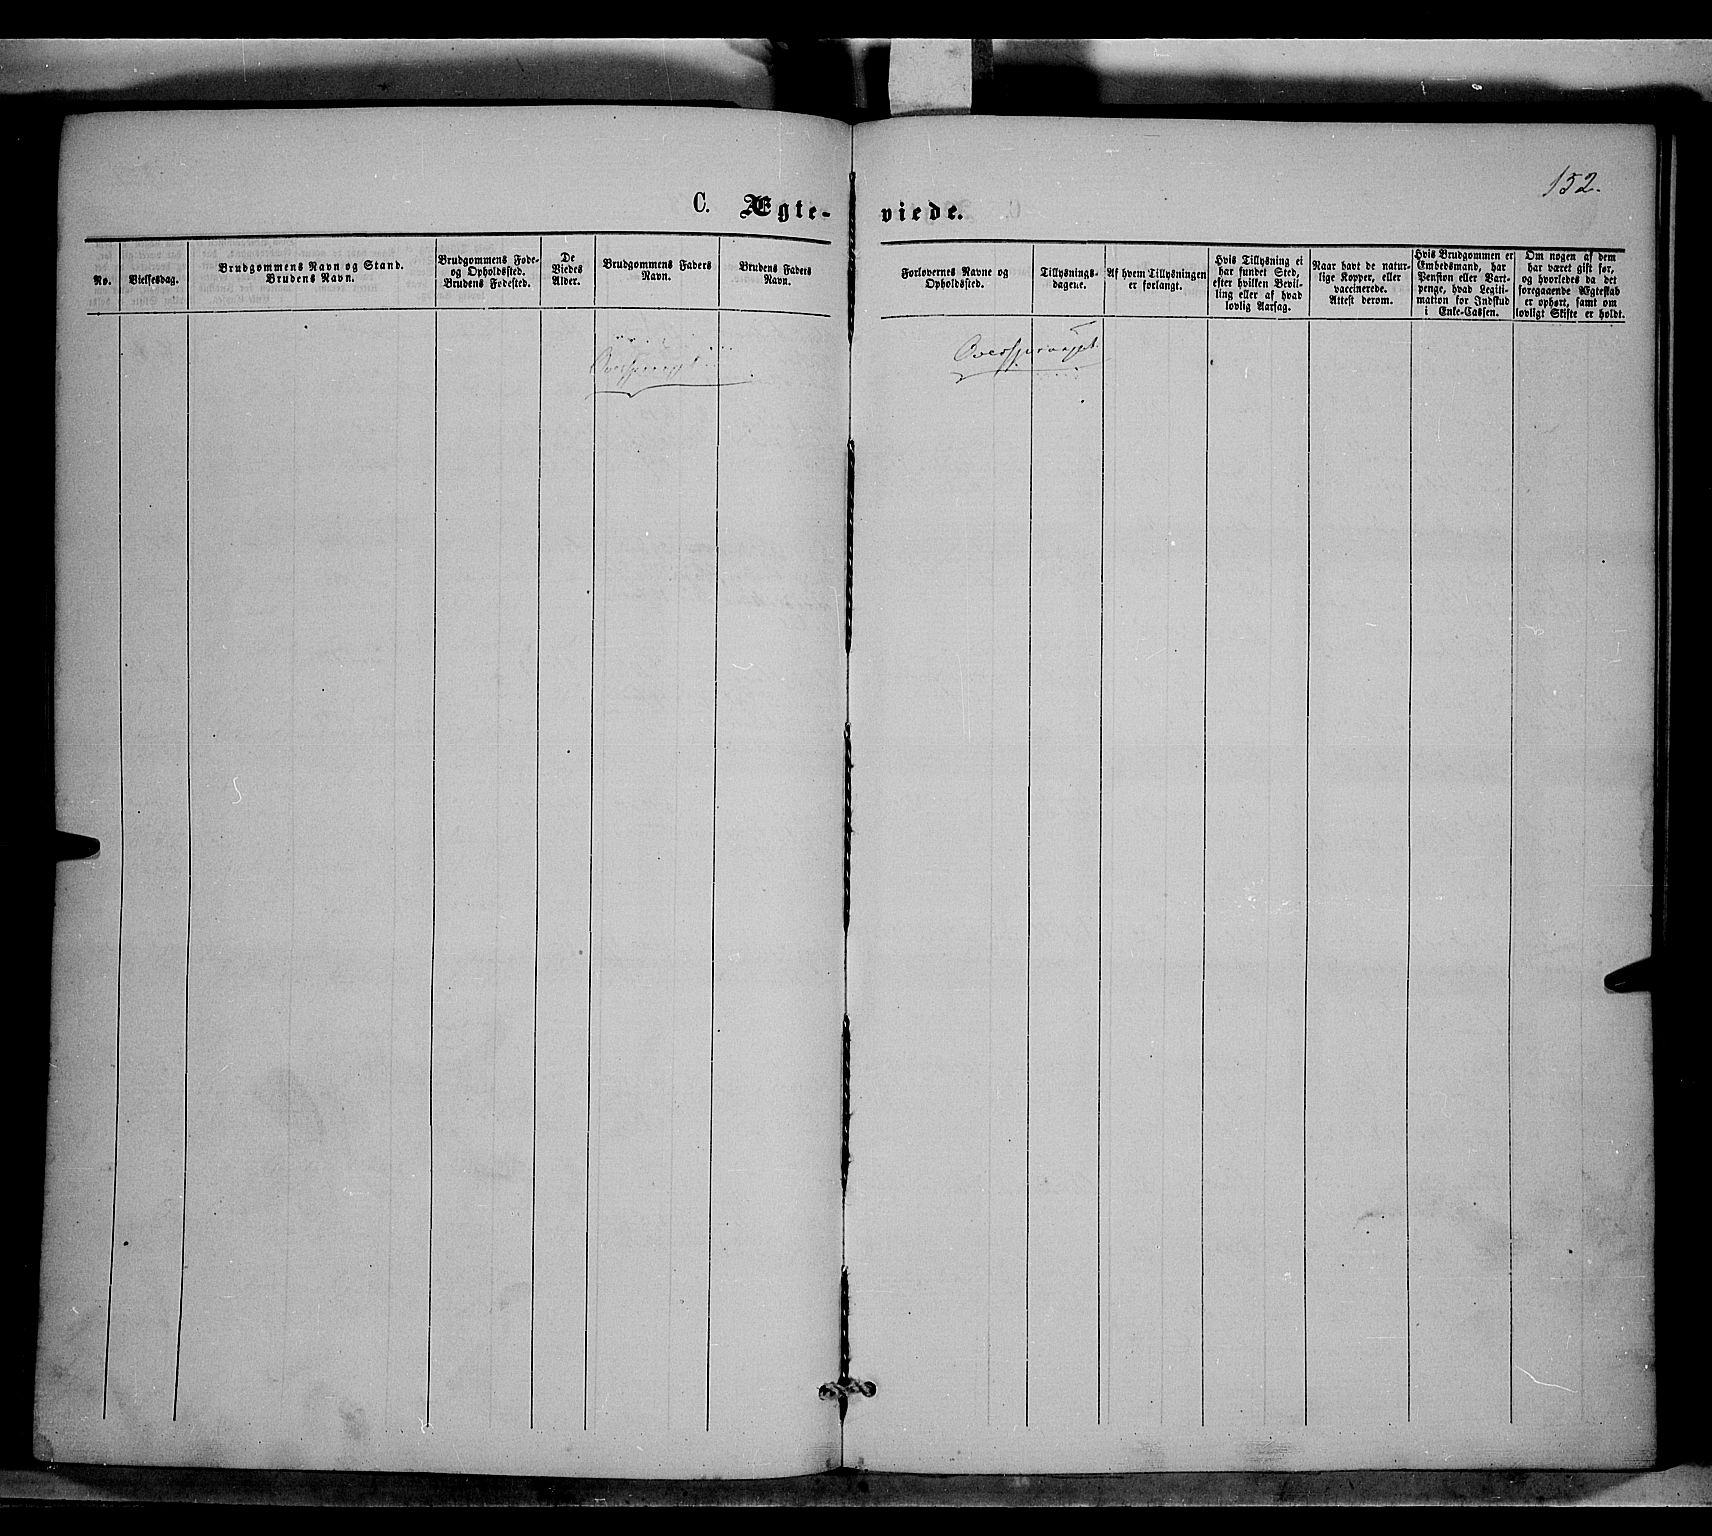 152.
C. Ægte- viede.
No.
Vielsesdag.
Brudgommens Navn og Stand.
Brudens Navn.
Brudgommens Føde-
og Opholdssted.
Brudens Fødested.
De
Viedes
Alder.
Brudgommens Faders
Navn.
Brudens Faders
Navn.
Forlovernes Navne og
Opholdssted.
Tillysnings-
dagene.
Af hvem Tillysningen
er forlangt.
Hvis Tillysning ei
har fundet Sted,
efter hvilken Bevil-
ling eller af hvad
lovlig Aarsag.
Naar havt de natur-
lige Kopper, eller
vaccinerede.
Attest derom.
Hvis Brudgommen er
Embedsmand, har
Pension eller Vart-
penge, hvad Legiti-
mation for Indskud
i Enke-Cassen.
Om nogen af dem
har været gift før,
og hvorledes da det
foregaaende Ægteskab
er ophørt, samt om
lovligt Skifte er holdt.
Oversprunget
Oversprunget.